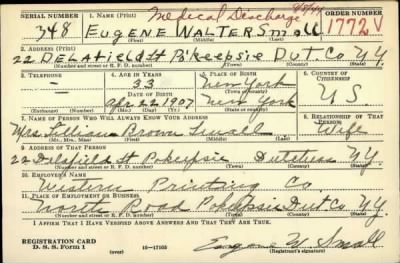 SERIAL NUMBER 1. NAME (Print) Medical Discharge ORDER NUMBER
348 EUGENE WALTER Small 1772 V
(First) (Middle) (Last)
2. ADDRESS (Print)
22 DELAFIELD St Po'keepsie Dut. Co N.Y.
(Number and street or R. F. D. number) (Town) (County) (State)
3. TELEPHONE 4. AGE IN YEARS 5. PLACE OF BIRTH 6. COUNTRY OF CITIZENSHIP
33 New York
DATE OF BIRTH (Town or county)
Apr 22 1907 New York U.S.
(Exchange) (Number) (Mo.) (Day) (Yr.) (State or country)
7. NAME OF PERSON WHO WILL ALWAYS KNOW YOUR ADDRESS 8. RELATIONSHIP OF THAT PERSON
Mrs. Lillian Brown Small Wife
(Mr., Mrs., Miss) (First) (Middle) (Last)
9. ADDRESS OF THAT PERSON
22 Delafield St Pokeepsie Dutchess N.Y.
(Number and street or R. F. D. number) (Town) (County) (State)
10. EMPLOYER'S NAME
Western Printing Co
11. PLACE OF EMPLOYMENT OR BUSINESS
North Road Pokeepsie Dut Co N.Y.
(Number and street or R. F. D. number) (Town) (County) (State)
I AFFIRM THAT I HAVE VERIFIED ABOVE ANSWERS AND THAT THEY ARE TRUE.
REGISTRATION CARD
D. S. S. Form 1 (over) 16—17105 Eugene W. Small
(Registrant's signature)